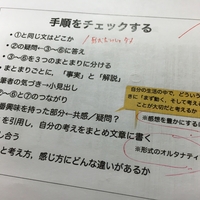 手順をチェックする
・①と同じ文はどこか
・②の疑問←③〜⑥に答え
・③〜⑥を３つのまとまりに分ける
・まとまりごとに、「事実」と「解説」
筆者の気づき→小見出し
〜⑥と⑦のつながり
番興味を持った部分←共感／疑問？
を引用し、自分の考えをまとめ文章に書く
し合う
と考え方、感じ方にどんな違いがあるか
自分の生活の中で、どういう
きに「まず動く、そして考え
ことが大切だと考えるか
※感想を豊かにする
※形式のオルタナティ